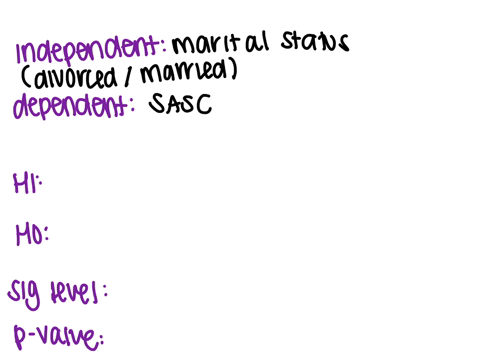 independent: marital status
(divorced / married)
dependent: SASC
H1:
H0:
sig level:
p-value: